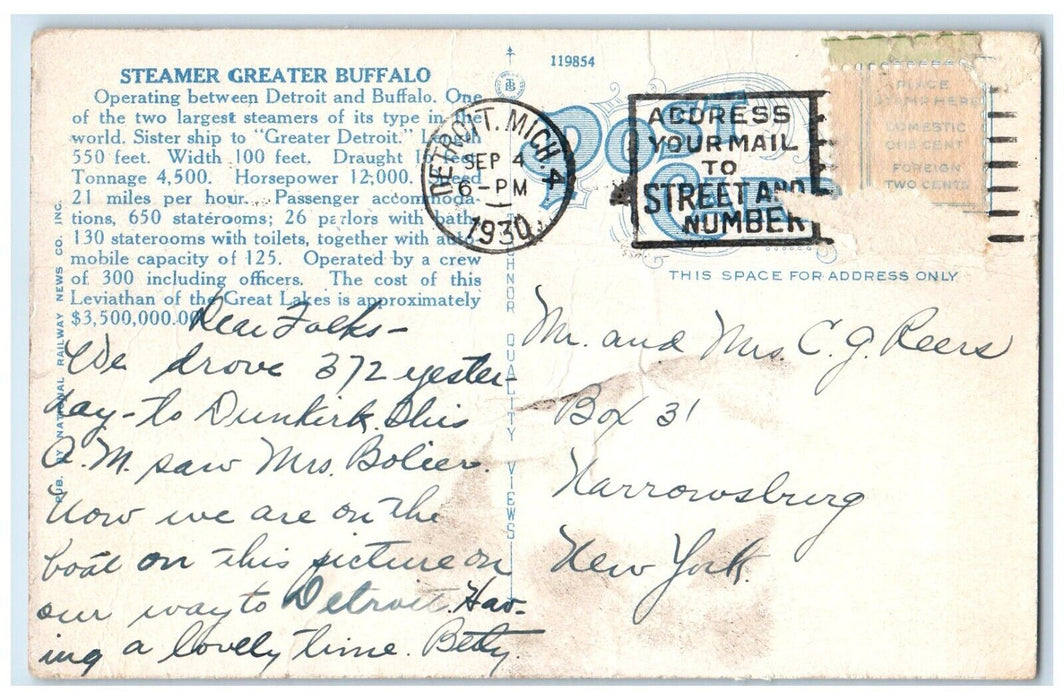 STEAMER GREATER BUFFALO
Operating between Detroit and Buffalo. One
of the two largest steamers of its type in the
world. Sister ship to "Greater Detroit."
550 feet. Width 100 feet. Draught
Tonnage 4,500. Horsepower 12,000.
21 miles per hour. Passenger accommoda-
tions, 650 staterooms; 26 parlors with bath,
130 staterooms with toilets, together with auto-
mobile capacity of 125. Operated by a crew
of 300 including officers. The cost of this
Leviathan of the Great Lakes is approximately
$3,500,000.00
PUB. BY NATIONAL RAILWAY NEWS CO. INC.
119854
POST
DETROIT, MICH. 4
SEP 4
6-PM
1930
ADDRESS
YOUR MAIL
TO
STREET AND
NUMBER
PLACE
STAMP HERE
DOMESTIC
ONE CENT
FOREIGN
TWO CENTS
THIS SPACE FOR ADDRESS ONLY
QUALITY VIEWS
Dear Folks-
We drove 372 yester-
day - to Dunkirk. This
A.M. saw Mrs. Bolier.
Now we are on the
boat on this picture on
our way to Detroit. Hav-
ing a lovely time. Betty.
Mr. and Mrs. C. G. Reers
Box 31
Narrowsburg
New York.